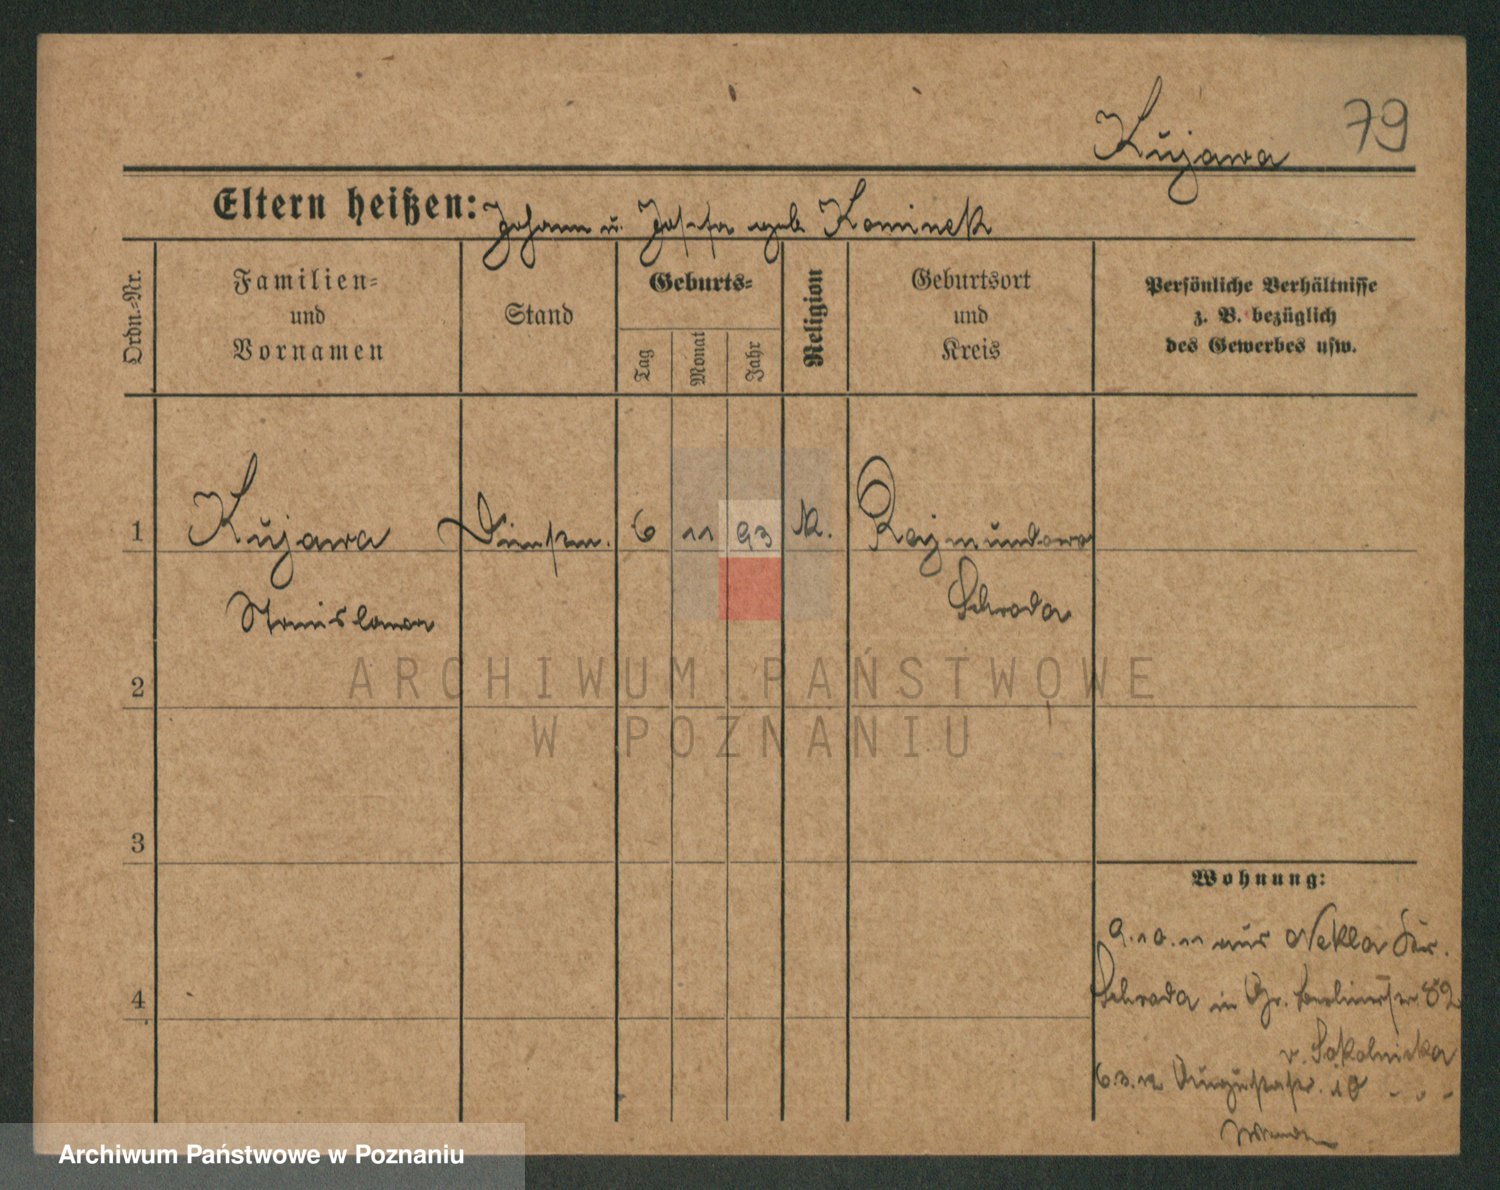 79
Kujawa
Eltern heißen: Johann u. Josefa geb. Kominek
Ordn.-Nr.
Familien-
und
Vornamen
Stand
Geburts-
Tag
Monat
Jahr
Religion
Geburtsort
und
Kreis
Persönliche Verhältnisse
z. B. bezüglich
des Gewerbes usw.
1
Kujawa
Stanislawa
6 11 93 K.
Rajmundowo
Schroda
2
3
4
Wohnung:
9.10.11 aus Nekla Kr.
Schroda in Gr. Berlinerstr. 82
v. Sokolnicka
6.3.12 Augustastr. 10 " " "
ARCHIWUM PAŃSTWOWE
W POZNANIU
Archiwum Państwowe w Poznaniu